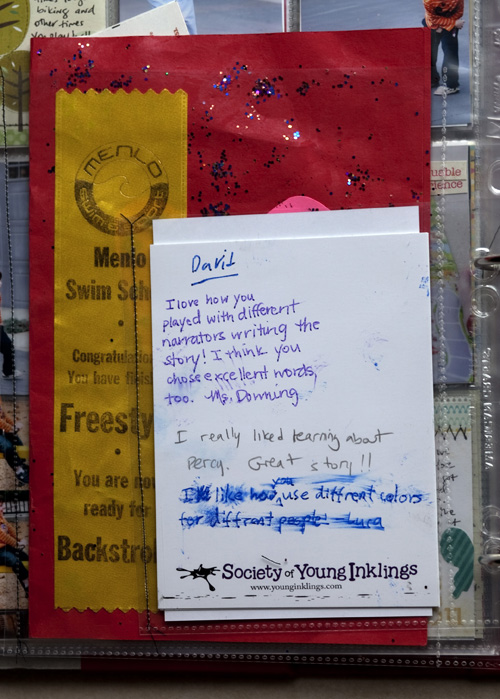 biking and
other times
MENLO
Menlo
Swim Sch
Congratulatio
You have finis
Freesty
You are no
ready for
Backstro
David
I love how you
played with different
narrators writing the
story! I think you
chose excellent words,
too. Ms. Downing
I really liked learning about
Percy. Great story!!
I like how you use diffrent colors
for diffrent people! Luca
Society of Young Inklings
www.younginklings.com